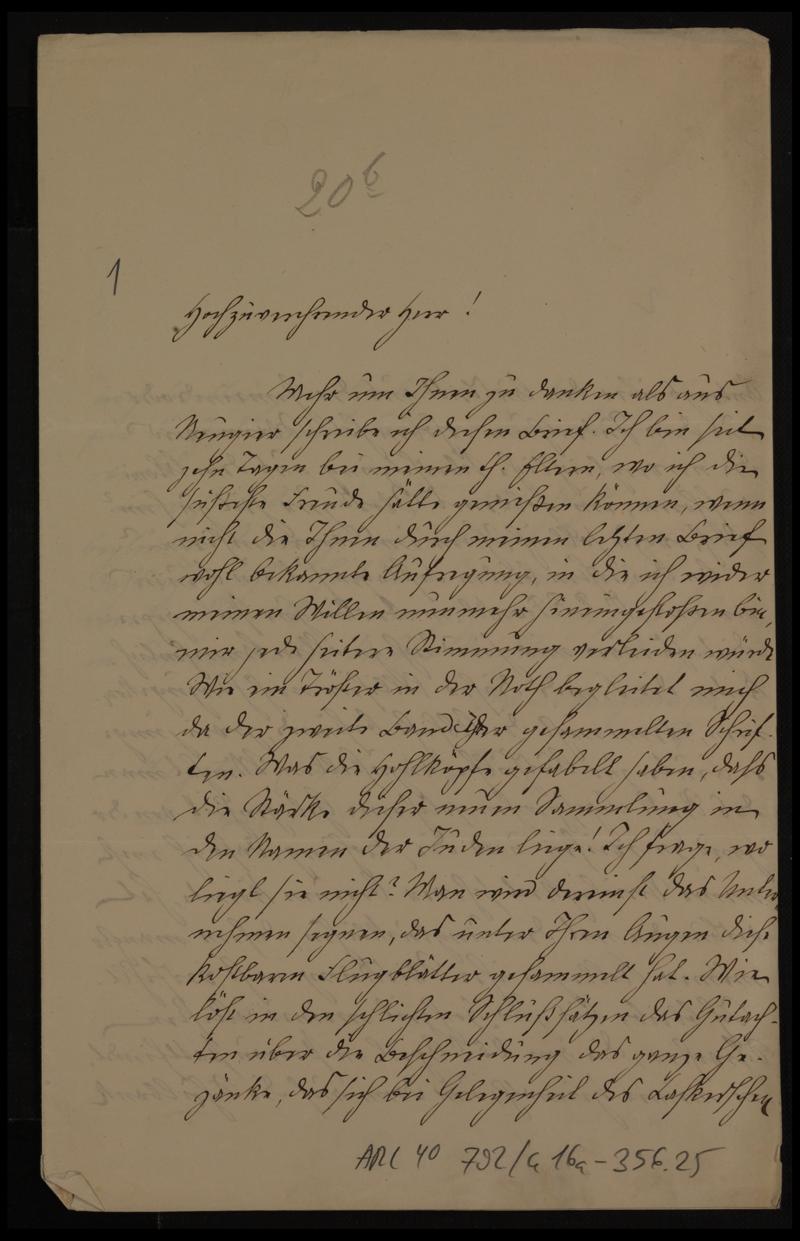 20b
1
Hochzuverehrender Herr!
Mehr um Ihnen zu danken als aus
Neugier schreibe ich diesen Brief. Ich bin seit
zehn Tagen bei meinen th. Eltern, wo ich die
süßeste Freude hätte genießen können, wenn
nicht die Ihnen durch meinen letzten Brief
wohl bekannte Aufregung, in die ich wider
meinen Willen nunmehr hineingestoßen bin,
mir jede heitere Stimmung verleiden würde
Wie ein Tröster in der Noth begleitet mich
da der zweite Band Ihrer gesammelten Schrif-
ten. Was die Hohlköpfe gefabelt haben, daß
die Stärke dieser neuen Sammlung in
den Namen der Juden liege! Ich frage, wo
liegt sie nicht? Man wird dereinst das Unter-
nehmen segnen, das unter Ihren Augen diese
kostbaren Flugblätter gesammelt hat. Wie
löst in den schlichten Schlußsätzen das Gutach-
ten über die Beschneidung das ganze Ge-
zänke, das sich bei Gelegenheit des Lasker'schen
ARC 4° 792/G 16a-356.25